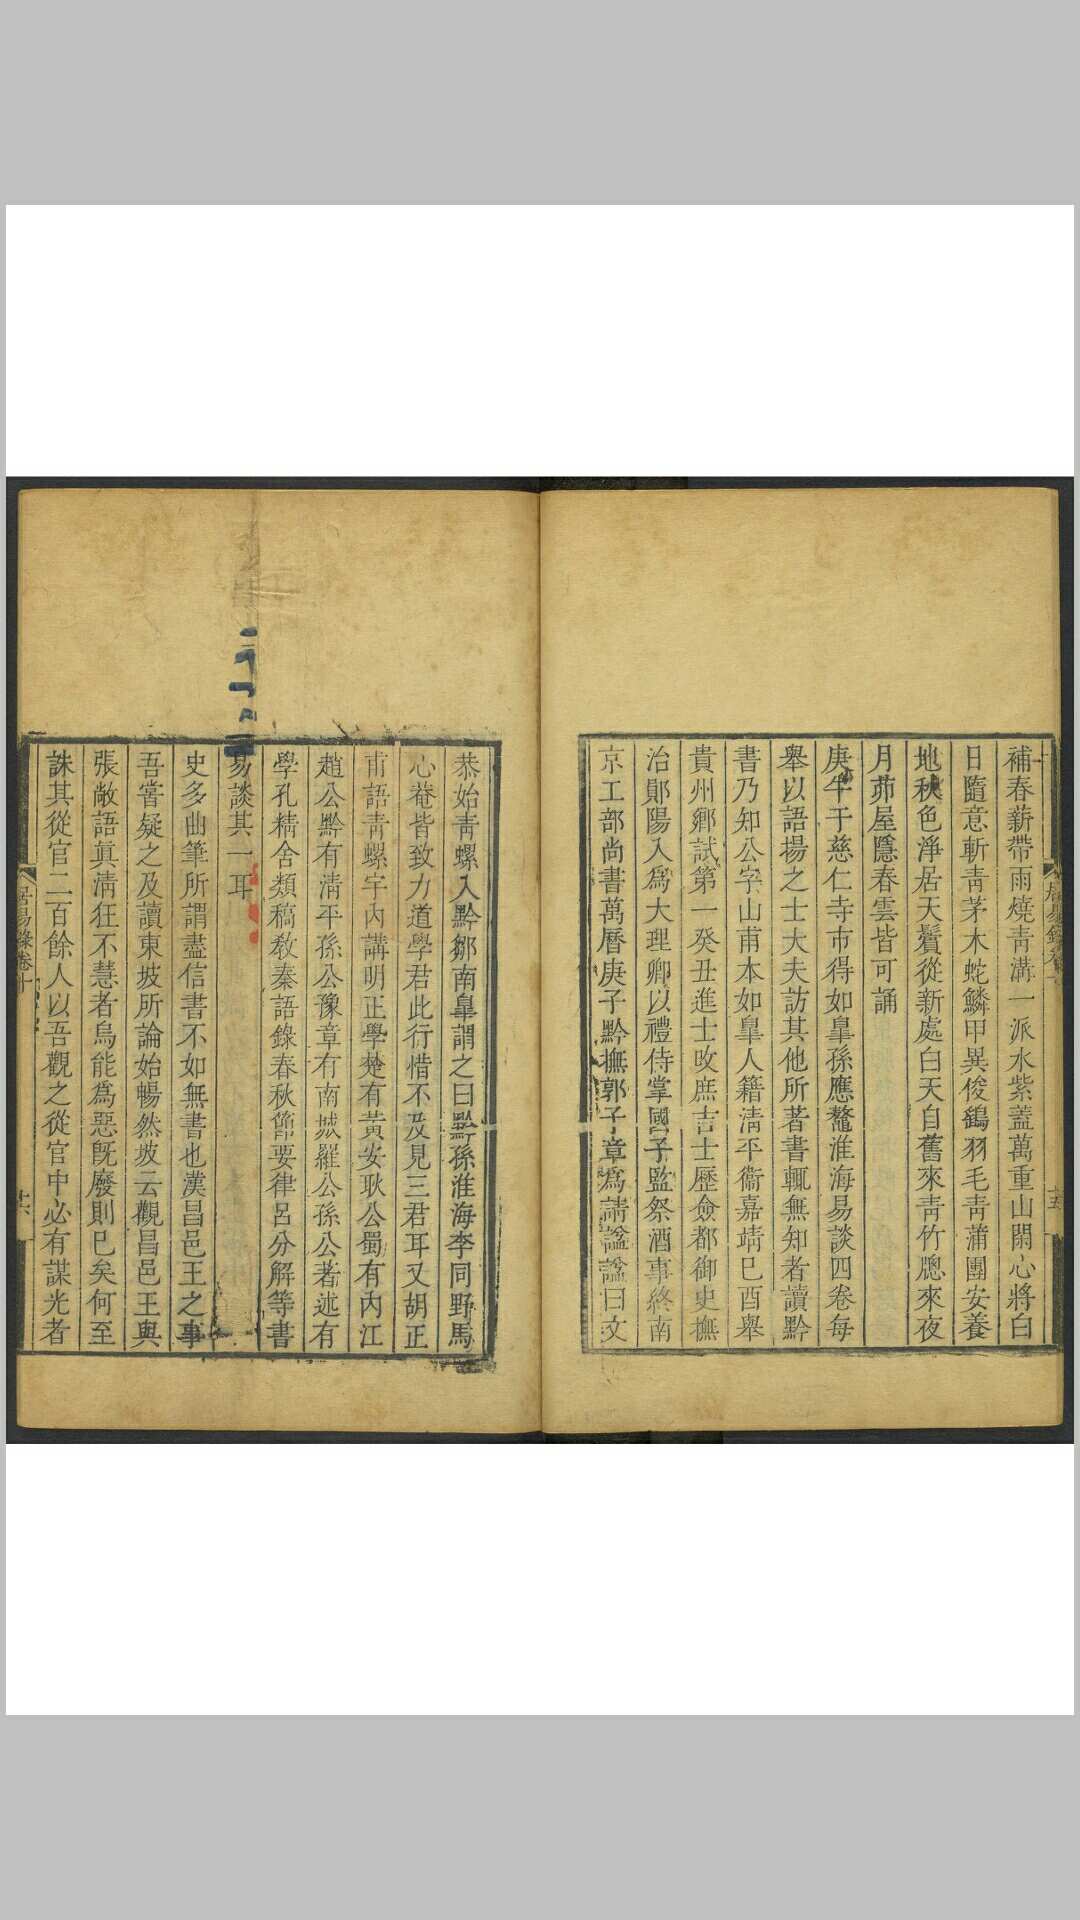 補春薪帶雨燒青溝一派水紫蓋萬重山閑心將白
日隨意斬青茅木蛇鱗甲異俊鶴羽毛青蒲團安養
地秋色淨居天鬢從新處白天自舊來青竹牕來夜
月茆屋隱春雲皆可誦
庚午于慈仁寺市得如臯孫應鼇淮海易談四卷每
舉以語揚之士大夫訪其他所著書輒無知者讀黔
書乃知公字山甫本如臯人籍淸平衞嘉靖己酉舉
貴州鄕試第一癸丑進士攺庶吉士歷僉都御史撫
治鄖陽入爲大理卿以禮侍掌國子監祭酒事終南
京工部尚書萬曆庚子黔撫郭子章爲請諡諡曰文
恭始靑螺入黔鄒南臯謂之曰黔孫淮海李同野馬
心菴皆致力道學君此行惜不及見三君耳又胡正
甫語靑螺宇內講明正學楚有黃安耿公蜀有內江
趙公黔有淸平孫公豫章有南城羅公孫公著述有
學孔精舍類稿敎秦語錄春秋節要律呂分解等書
易談其一耳
史多曲筆所謂盡信書不如無書也漢昌邑王之事
吾嘗疑之及讀東坡所論始暢然坡云觀昌邑王與
張敞語眞淸狂不慧者烏能爲惡旣廢則已矣何至
誅其從官二百餘人以吾觀之從官中必有謀光者
居易錄卷十
十六